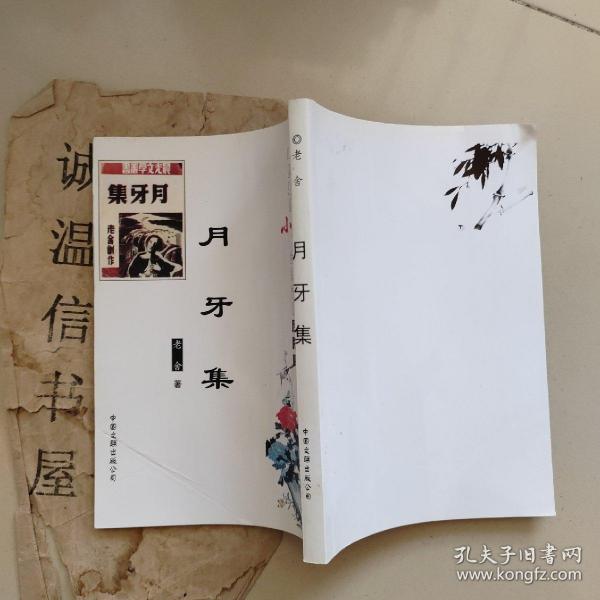 诚温信书屋
晨光文學叢書
月牙集
老舍創作
月牙集
老舍 著
中国文联出版公司
小
◎老舍
月牙集
中国文联出版公司
孔夫子旧书网
www.kongfz.com